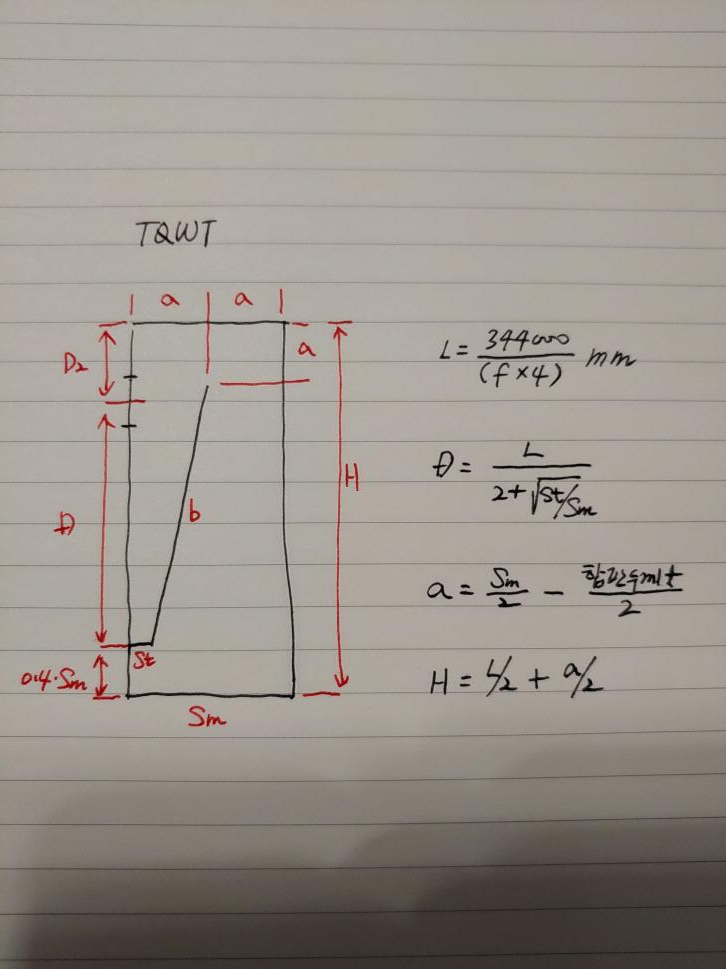 TQWT
a a
a
D2
H
b
D
St
0.4·Sm
Sm
L = 344000/(f×4) mm
D = L/(2+√St/Sm)
a = Sm/2 - 합판두께/2
H = L/2 + a/2